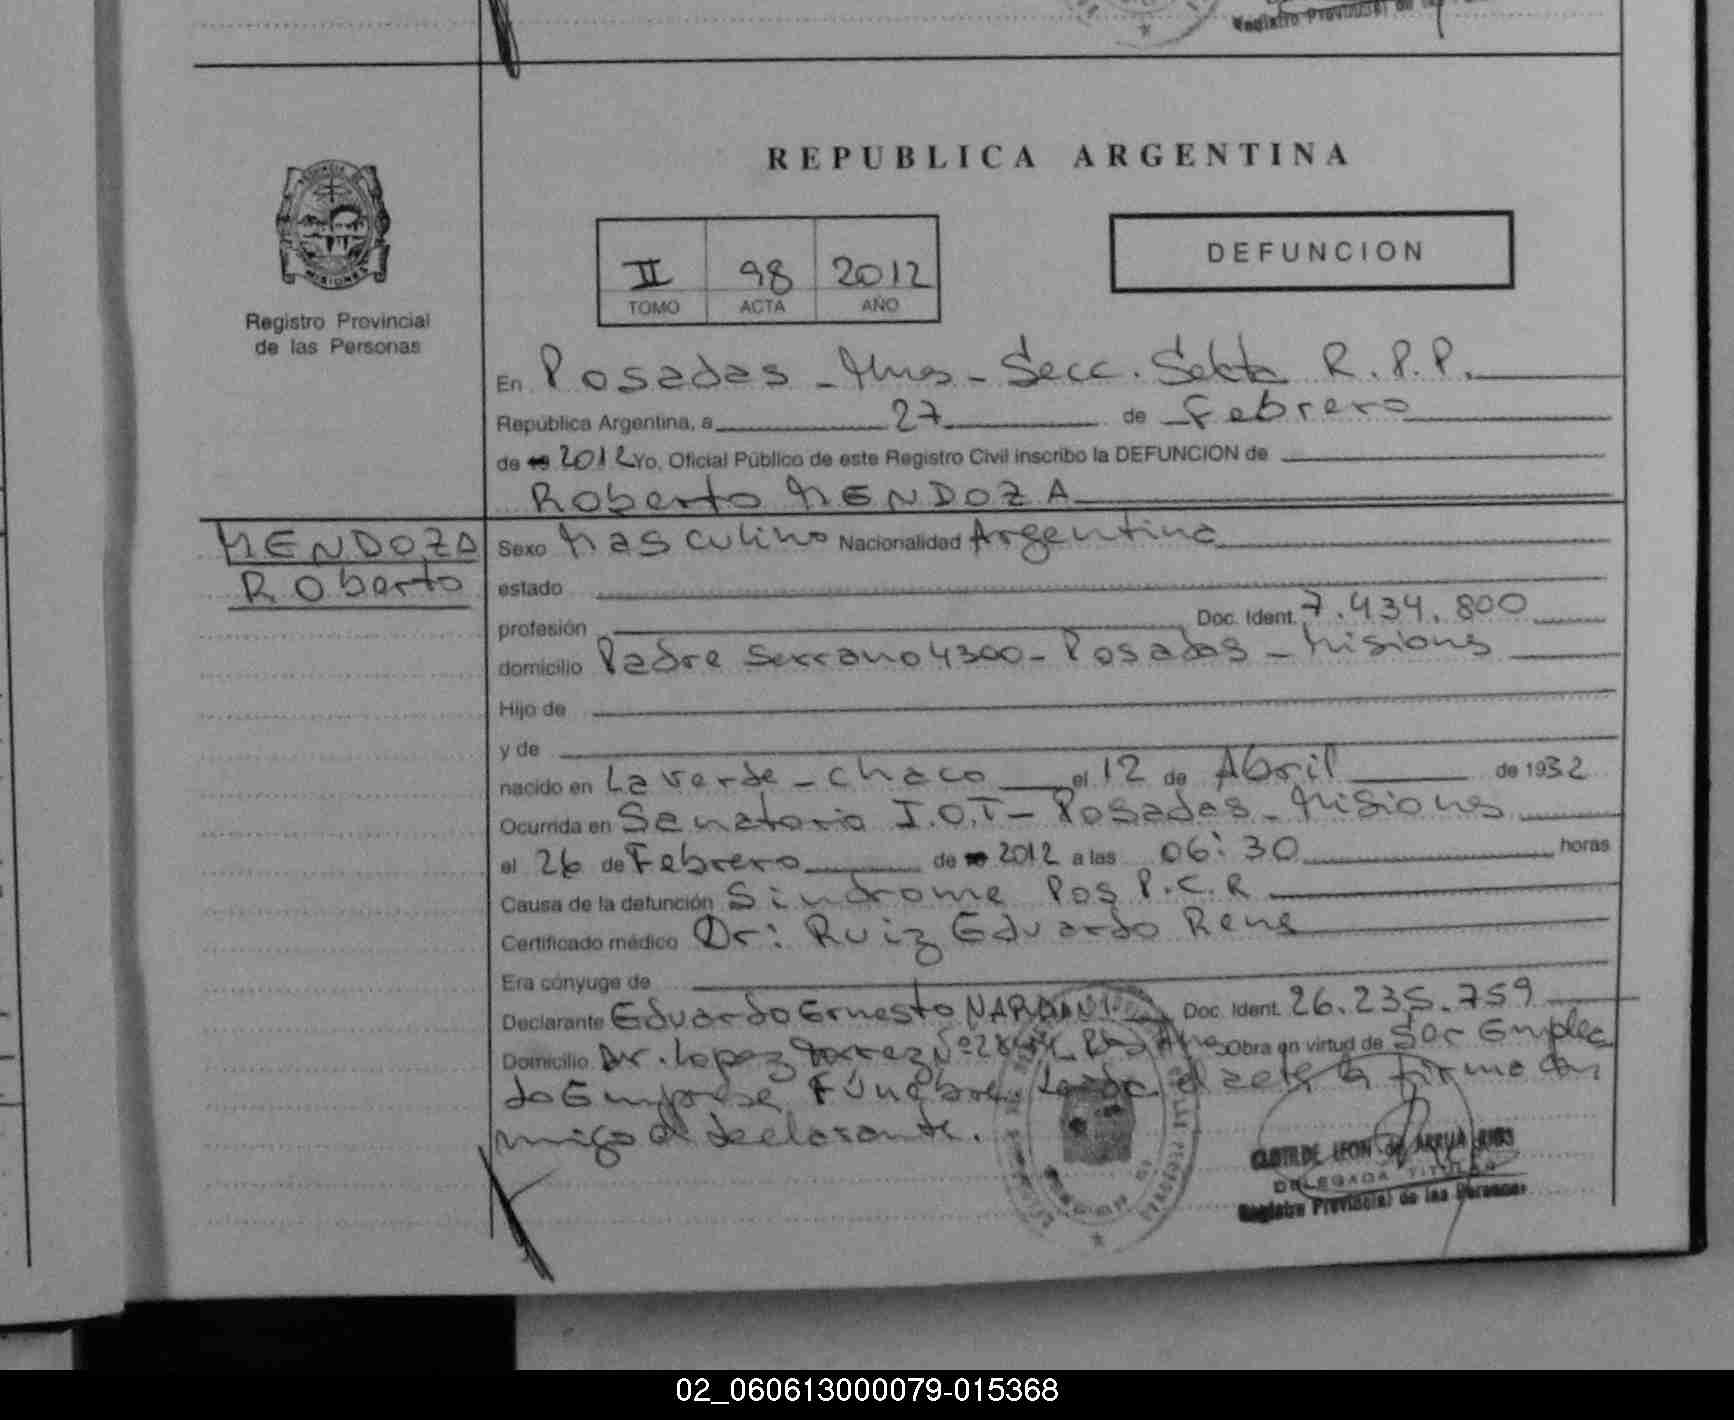 Registro Provincial de las
REPUBLICA ARGENTINA
MISIONES
Registro Provincial
de las Personas
II 98 2012
TOMO ACTA AÑO
DEFUNCION
En Posadas - Mnes - Secc. Sexta R.P.P.
República Argentina, a 27 de Febrero
de 2012 Yo, Oficial Público de este Registro Civil inscribo la DEFUNCION de
Roberto MENDOZA
MENDOZA
Roberto
Sexo Masculino Nacionalidad Argentina
estado
profesión Doc. Ident. 7.434.800
domicilio Padre Serrano 4300 - Posadas - Misiones
Hijo de
y de
nacido en La verde - chaco el 12 de Abril de 1932
Ocurrida en Sanatorio I.O.T - Posadas - Misiones
el 26 de Febrero de 2012 a las 06:30 horas
Causa de la defunción Sindrome Pos P.C.R
Certificado médico Dr: Ruiz Eduardo Rene
Era cónyuge de
Declarante Eduardo Ernesto NARDINI Doc. Ident. 26.235.759
Domicilio Av. Lopez torrez Nº Obra en virtud de Ser Emplea
do Empresa Fúnebre. Leída el acta la firma con
migo el declarante.
CLOTILDE LEON de ARRUA RIOS
DELEGADA TITULAR
Registro Provincial de las Personas
02_060613000079-015368